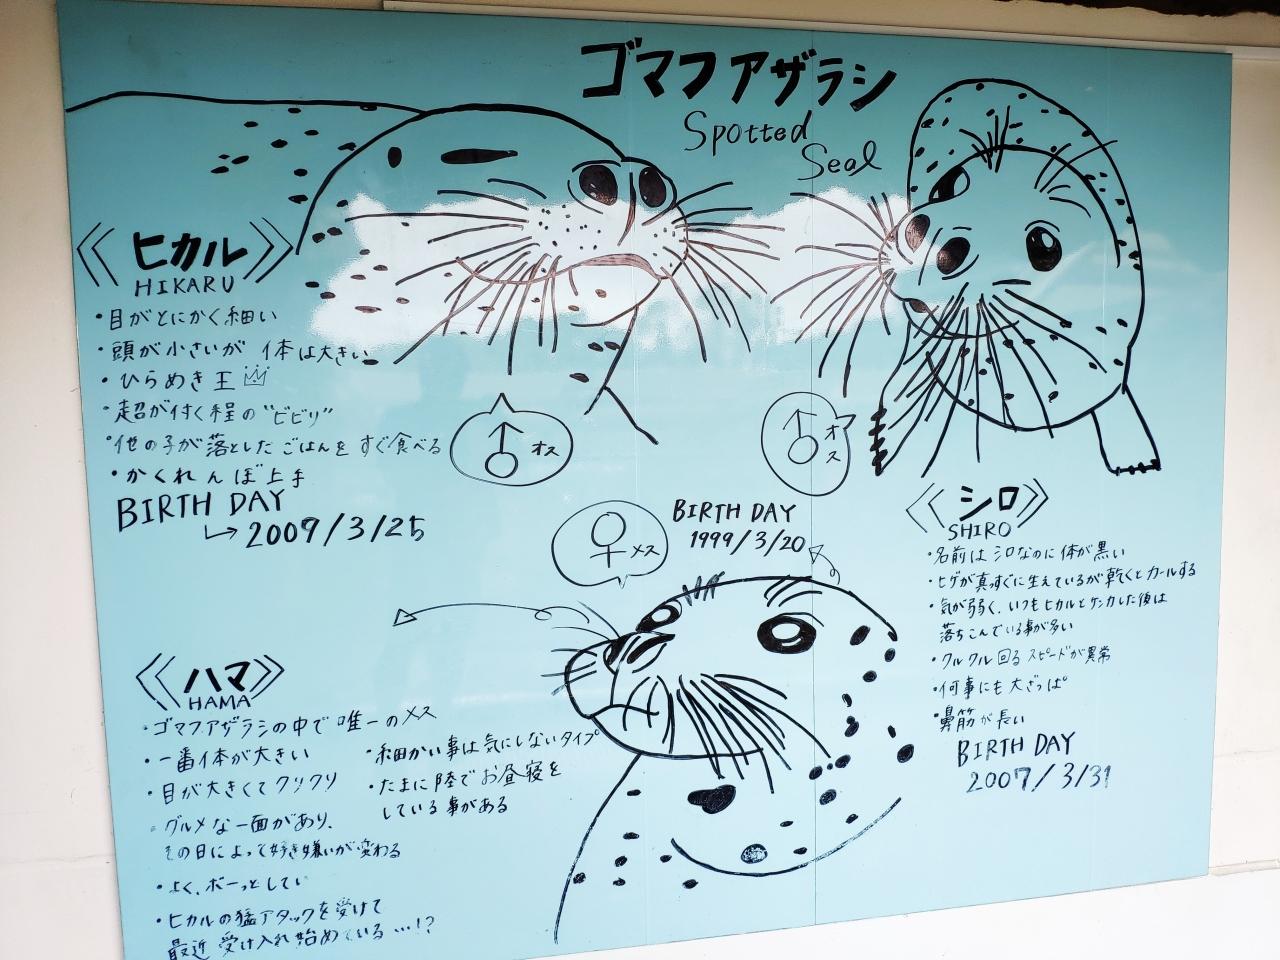 ゴマフアザラシ
Spotted
Seal
《ヒカル》
HIKARU
・目がとにかく細い
・頭が小さいが 体は大きい
・ひらめき王
・超が付く程の"ビビリ"
・他の子が落としたごはんをすぐ食べる
・かくれんぼ上手
BIRTH DAY
2009/3/25
♂オス
♂オス
《シロ》
SHIRO
・名前はシロなのに体が黒い
・ヒゲが真っすぐに生えているが乾くとカールする
・気が弱く、いつもヒカルとケンカした後は
落ちこんでいる事が多い
・クルクル回るスピードが異常
・何事にも大ざっぱ
・鼻筋が長い
BIRTH DAY
2007/3/31
♀メス
BIRTH DAY
1999/3/20
《ハマ》
HAMA
・ゴマフアザラシの中で唯一のメス
・一番体が大きい
・目が大きくてクリクリ
・グルメな一面があり、
その日によって好き嫌いが変わる
・よく、ボーっとしてい
・ヒカルの猛アタックを受けて
最近受け入れ始めている…!?
・細かい事は気にしないタイプ
・たまに陸でお昼寝を
している事がある